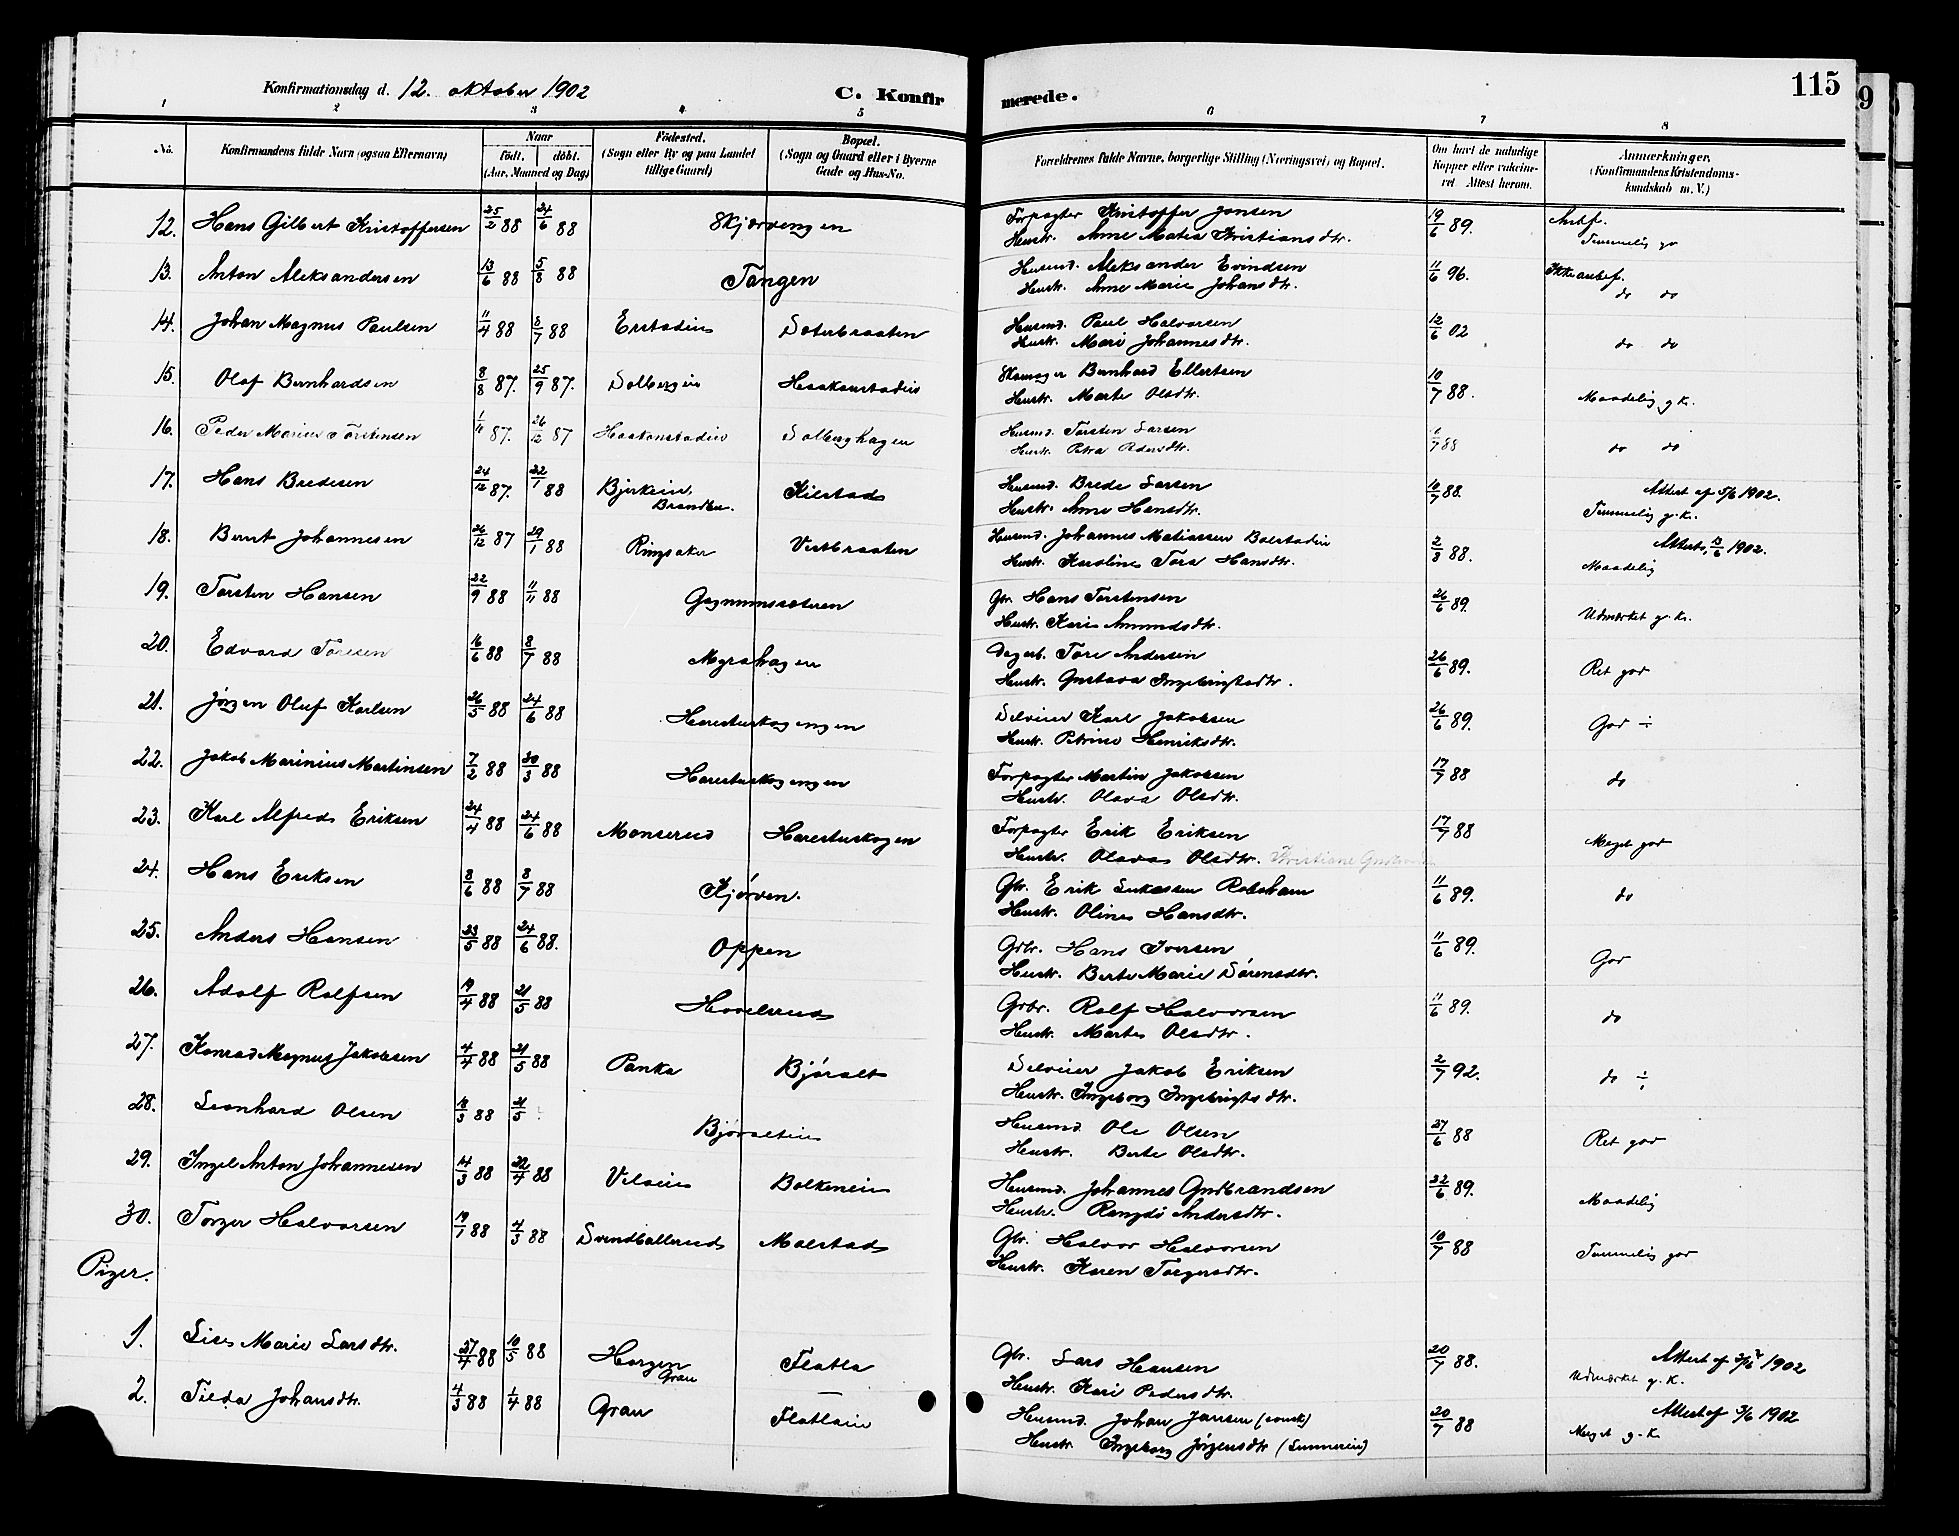 115
Konfirmationsdag d. 12. oktober 1902
C. Konfirmerede.
1 2 3 4 5 6 7 8
No. Konfirmandens fulde Navn (ogsaa Efternavn) Naar født. døbt. (Aar, Maaned og Dag) Fødested. (Sogn eller By og paa Landet tillige Gaard) Bopæl. (Sogn og Gaard eller i Byerne Gade og Hus-No. Forældrenes fulde Navne, borgerlige Stilling (Næringsvei) og Bopæl. Om havt de naturlige Kopper eller vakcineret Attest herom. Anmærkninger. (Konfirmandens Kristendomskundskab m. V.)
12. Hans Gilbert Kristoffersen 25/2 88 24/6 88 Skjærvengen Forpagter Kristoffer Jansen 19/6 89. Anbf.
Hustr. Anne Matea Kristiansdtr. Temmelig go
13. Anton Aleksandersen 13/6 88 5/8 88 Tangen Husmd. Aleksander Evindsen 11/6 96. Ikke anbef.
Hustr. Anne Marie Johansdtr. do do
14. Johan Magnus Paulsen 11/4 88 8/7 88 Erstadeie Sæterbraaten Husmd. Paul Halvorsen 12/6 02
Hustr. Mari Johannesdtr. do do
15. Olaf Bernhardsen 8/8 87. 25/9 87. Solbergeie Haakenstadeie Skomager Bernhard Ellertsen 10/7 88.
Hustr. Marte Olsdtr. Maadelig g K.
16. Peder Marius Torstensen 1/11 87. 26/12 87 Haakenstadeie Solberghagen Husmd. Torsten Larsen 1/7 88
Hustr. Petra Pedersdtr. do do
17. Hans Bredesen 24/12 87. 22/1 88 Bjerkeie, Brandbu. Kilstad Husmd. Brede Larsen 10/7 88. Attest af 5/6 1902.
Hustr. Anne Hansdtr. Temmelig g. K.
18. Bernt Johannesen 26/12 87 29/1 88 Ringsaker Vestbraaten Husmd. Johannes Matiassen Bolstadeie 2/3 88. Attest, 13/6 1902.
Hustr. Karoline Tora Hansdtr. Maadelig
19. Torsten Hansen 22/9 88 11/11 88 Gagnumsæteren Gbr. Hans Torstensen 26/6 89.
Hustr. Kari Amundsdtr. Udmærket g. K.
20. Edvard Toresen 16/6 88 8/7 88 Myrahagen Dagarb. Tore Andersen 26/6 89. Ret god
Hustr. Gustava Ingebrigtsdtr.
21. Jørgen Oluf Karlsen 26/5 88 24/6 88 Harestuskogengen Selveier Karl Jakobsen 26/6 89. God ÷
Hustr. Petrine Henriksdtr.
22. Jakob Marinius Martinsen 7/2 88 30/3 88 Harestuskogengen Forpagter Martin Jakobsen 17/7 88 do
Hustr. Olava Olsdtr.
23. Karl Alfred Eriksen 24/4 88 24/6 88 Monserud Harestuskogen Forpagter Erik Eriksen 17/7 88 Meget god
Hustr. Olava Olsdtr. Kristiane
24. Hans Eriksen 8/6 88 8/7 88 Kjørven. Gbr. Erik Lukassen 11/6 89. do
Hustr. Oline Hansdtr.
25. Anders Hansen 23/5 88 24/6 88. Oppen Grbr. Hans Iversen 11/6 89. God
Hustr. Berte Marie Sørensdtr.
26. Adolf Rolfsen 19/4 88 21/5 88 Hovelsrud Grbr. Rolf Halvorsen 11/6 89. do
Hustr. Marte Olsdtr.
27. Konrad Magnus Jakobsen 4/4 88 21/5 88 Panka Bjøralt Selveier Jakob Eriksen 2/7 92. do ÷
Hustr. Ingeborg Ingebrigtsdtr.
28. Leonhard Olsen 18/3 88 21/5 Bjøralteie Husmd. Ole Olsen 27/6 88 Ret god
Hustr. Berte Olsdtr.
29. Ingel Anton Johannesen 14/3 88 22/4 88 Veloeie Bolkeneie Husmd. Johannes Gudbrandsen 22/6 89. Maadelig
Hustr. Rangdø Andersdtr.
30. Torger Halvorsen 19/1 88 4/3 88 Svendballerud Molstad Gbr. Halvor Halvorsen 10/7 88 Temmelig god
Hustr. Karen Torgersdtr.
Piger.
1. Lise Marie Larsdtr. 27/4 88 10/5 88 Horgen Gran Flatla Gbr. Lars Hansen 20/7 88. Attest af 1902
Hustr. Kari Pedersdtr. Udmærket g. K.
2. Tilda Johansdtr. 4/3 88 1/4 88 Gran Flatlaeie Husmd. Johan Jansen (svensk) 20/7 88 Attest af 3/6 1902
Hustr. Ingeborg Jørgensdtr Meget g. K.